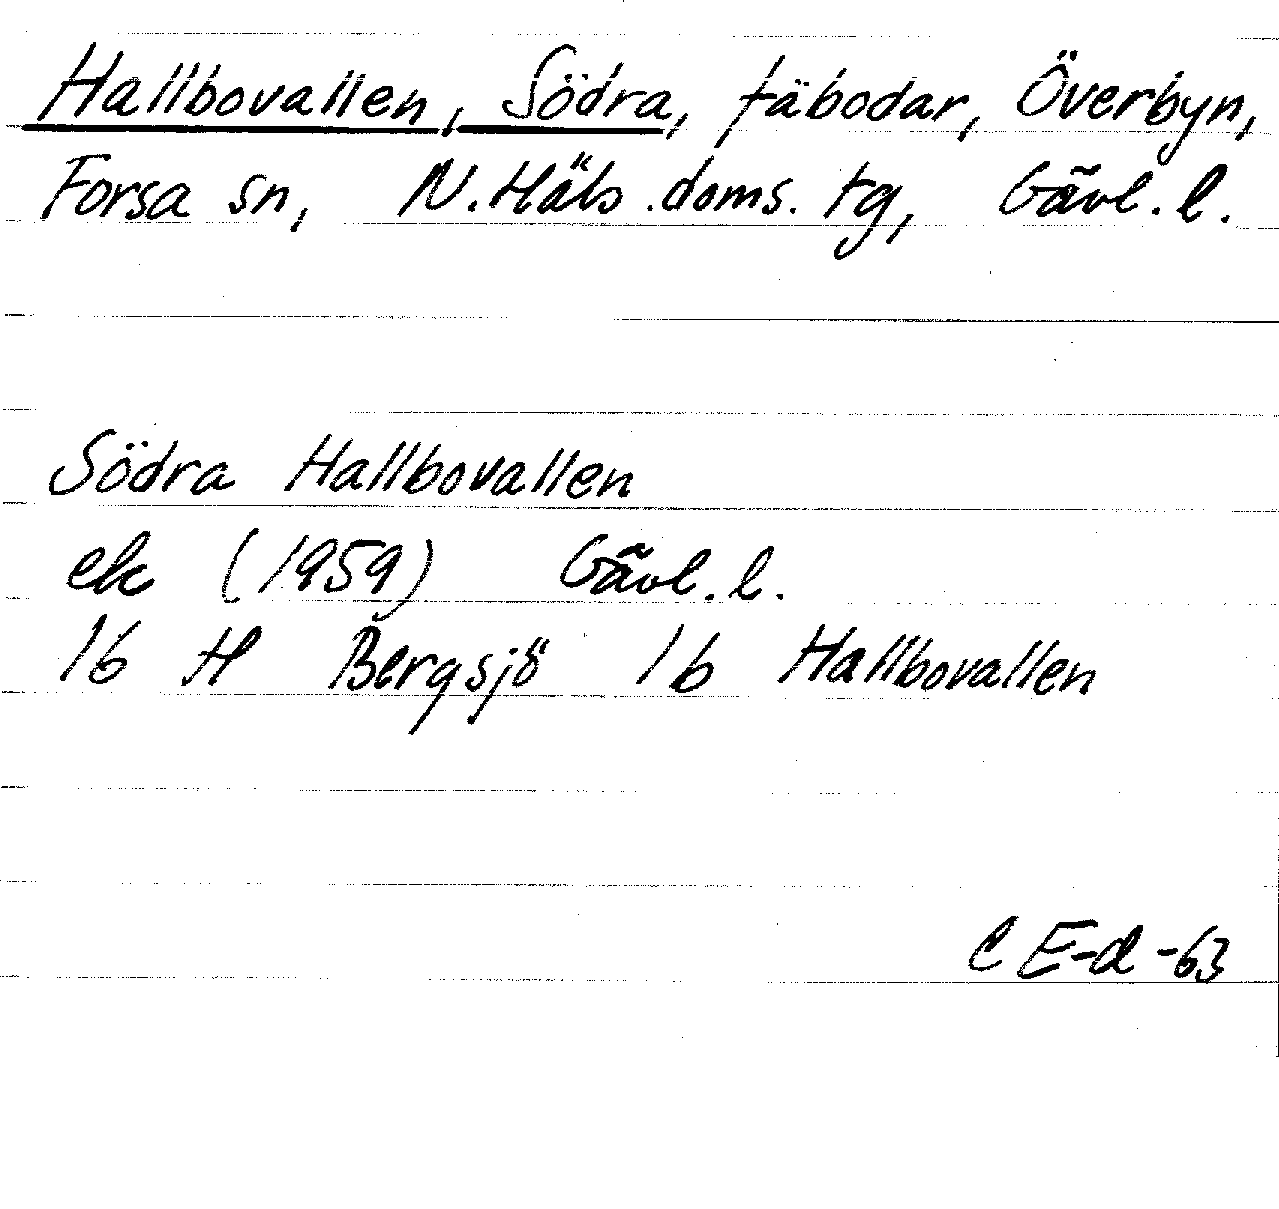 Hallbovallen, Södra, fäbodar, Överbyn,
Forsa sn, N. Häls. doms. tg, Gävl. l.
Södra Hallbovallen
ek (1959) Gävl. l.
16 H Bergsjö 1 b Hallbovallen
C E-d -63